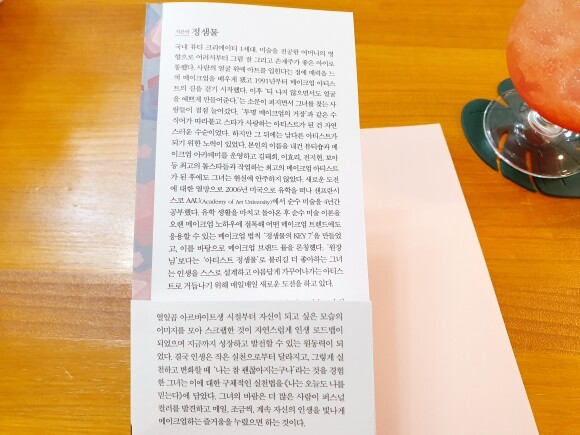 지은이 정샘물
국내 뷰티 크리에이터 1세대. 미술을 전공한 어머니의 영
향으로 어려서부터 그림 잘 그리고 손재주가 좋은 아이로
통했다. 사람의 얼굴 위에 아트를 입힌다는 점에 매력을 느
껴 메이크업을 배우게 됐고 1991년부터 메이크업 아티스
트의 길을 걷기 시작했다. 이후 '티 나지 않으면서도 얼굴
을 예쁘게 만들어준다.'는 소문이 퍼지면서 그녀를 찾는 사
람들이 점점 늘어갔다. '투명 메이크업의 거장'과 같은 수
식어가 따라붙고 스타가 사랑하는 아티스트가 된 건 자연
스러운 수순이었다. 하지만 그 뒤에는 남다른 아티스트가
되기 위한 노력이 있었다. 본인의 이름을 내건 뷰티숍과 메
이크업 아카데미를 운영하고 김태희, 이효리, 전지현, 보아
등 최고의 톱스타들과 작업하는 최고의 메이크업 아티스트
가 된 후에도 그녀는 현실에 안주하지 않았다. 새로운 도전
에 대한 열망으로 2006년 미국으로 유학을 떠나 샌프란시
스코 AAU(Academy of Art University)에서 순수 미술을 4년간
공부했다. 유학 생활을 마치고 돌아온 후 순수 미술 이론을
오랜 메이크업 노하우에 접목해 어떤 메이크업 트렌드에도
응용할 수 있는 메이크업 법칙 '정샘물의 KEY 7'을 만들었
고, 이를 바탕으로 메이크업 브랜드 룰을 론칭했다. '원장
님'보다는 '아티스트 정샘물'로 불리길 더 좋아하는 그녀
는 인생을 스스로 설계하고 아름답게 가꾸어나가는 아티스
트로 거듭나기 위해 매일매일 새로운 도전을 하고 있다.
열일곱 아르바이트생 시절부터 자신이 되고 싶은 모습의
이미지를 모아 스크랩한 것이 자연스럽게 인생 로드맵이
되었으며 지금까지 성장하고 발전할 수 있는 원동력이 되
었다. 결국 인생은 작은 실천으로부터 달라지고, 그렇게 실
천하고 변화할 때 '나는 참 괜찮아지는구나'라는 것을 경험
한 그녀는 이에 대한 구체적인 실천법을 《나는 오늘도 나를
믿는다》에 담았다. 그녀의 바람은 더 많은 사람이 퍼스널
컬러를 발견하고 매일, 조금씩, 계속 자신의 인생을 빛나게
메이크업하는 즐거움을 누렸으면 하는 것이다.